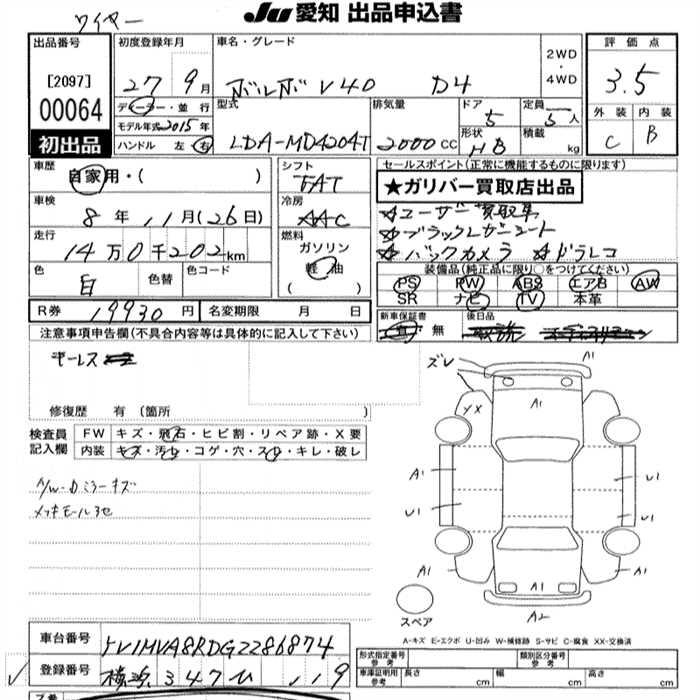 ワイヤー
JU 愛知 出品申込書
出品番号 初度登録年月 車名・グレード 2WD・4WD 評価点
[2097] 27年9月 ボルボ V40 D4 3.5
00064 ディーラー・並行 型式 排気量 ドア 定員 外装 内装
モデル年式 2015年 LDA-MD4204T 2000CC 5 5人 C B
初出品 ハンドル 左 右 形状 HB 積載 kg
車歴 シフト セールスポイント(正常に機能するものに限ります)
自家用・( ) FAT ★ガリバー買取店出品
車検 冷房 ☆ユーザー買取車
8年11月(26日) AAC ☆ブラックレザーシート
走行 燃料 ☆バックカメラ ☆ドラレコ
14万0千202km ガソリン
色 色替 色コード 軽油 装備品(純正品に限り○をつけてください)
白 ( ) PS PW ABS エアB AW
SR ナビ TV 本革
R券 19930円 名変期限 月 日 新車保証書 後日品
注意事項申告欄(不具合内容等は具体的に記入して下さい) 有 無
キーレス
ズレ A1
XX A1
修復歴 有 (箇所
検査員 FW キズ・飛石・ヒビ割・リペア跡・X要
記入欄 内装 キズ・汚れ・コゲ・穴・スレ・キレ・破レ
A1 U1
A/W・Dミラーキズ
メッキモール
U1 U1
A1 A1 A1
スペア A2
A-キズ E-エクボ U-凹み W-補修跡 S-サビ C-腐食 XX-交換済
車台番号 YV1MVA8RDG2286874
登録番号 横浜 347 ひ 119
形式指定番号 参考 類別区分番号 参考
車庫証明用 参考 長さ cm 幅 cm 高さ cm